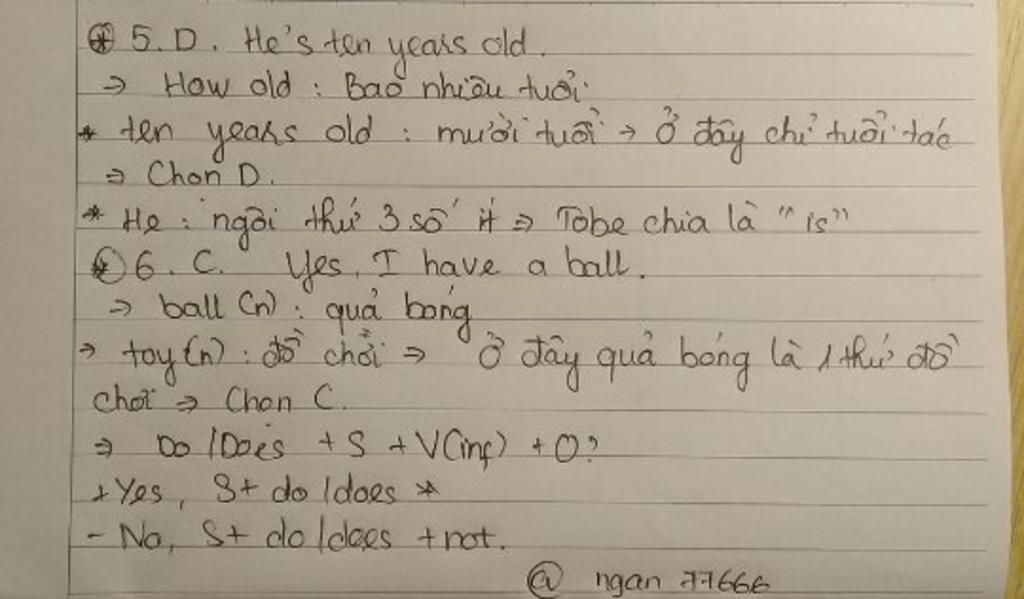 * 5. D. He's ten years old.
→ How old : Bao nhiêu tuổi.
* ten years old : mười tuổi → Ở đây chỉ tuổi tác
⇒ Chọn D.
* He : ngôi thứ 3 số ít ⇒ Tobe chia là "is"
* 6. C. Yes, I have a ball.
→ ball (n) : quả bóng
→ toy (n) : đồ chơi ⇒ Ở đây quả bóng là 1 thứ đồ
chơi ⇒ Chọn C.
⇒ Do / Does + S + V(inf) + O?
+ Yes, S + do / does *
- No, S + do / does + not.
@ ngan 77666